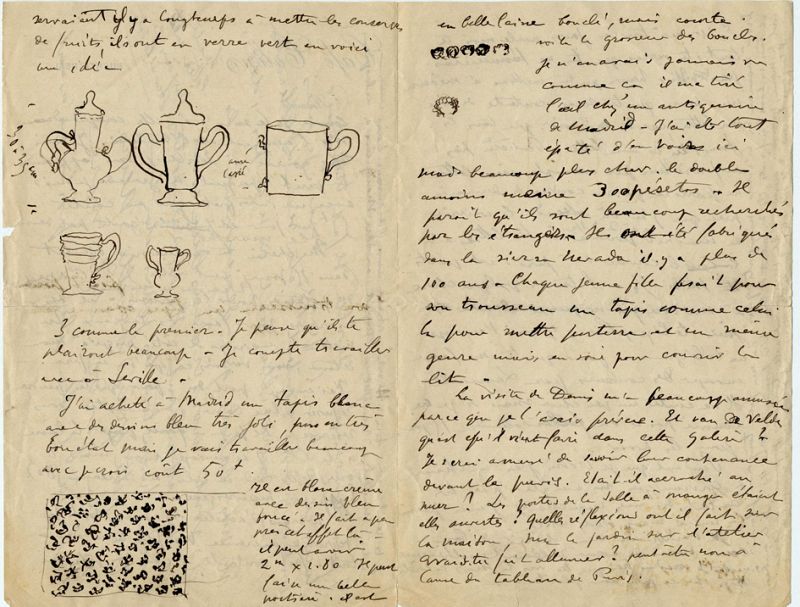 servaient il y a longtemps à mettre les conserves
de fruits, ils sont en verre vert en voici
une idée
30 à 35 cm
avec
3 comme le premier. Je pense qu'ils te
plairont beaucoup. Je compte travailler
avec à Séville.
J'ai acheté à Madrid un tapis blanc
avec des dessins bleu très joli, pas en très
bon état mais je vais travailler beaucoup
avec je crois coût 50
Il est blanc crème
avec dessins bleu
foncé. Il fait à peu
près cet effet là
il peut avoir
2m x 1.80 Il peut
faire une belle
portière. Il est
en belle laine bouclé, mais courte.
voilà la grosseur des boucles.
Je n'en avais jamais vu
comme ça il m'a tiré
l'œil chez un antiquaire
de Madrid. J'ai été tout
épaté d'en voir ici
mais beaucoup plus cher. le double
au moins même 300 pésétas. Il
parait qu'ils sont beaucoup recherchés
par les étrangers. Ils ont été fabriqués
dans la sierra Nevada il y a plus de
100 ans. Chaque jeune fille faisait pour
son trousseau un tapis comme celui
là pour mettre par terre et un même
genre mais en soie pour couvrir le
lit.
La visite de Denis m'a beaucoup amusé
parce que je l'avais prévue. Et van de Velde
qu'est ce qu'il vient faire dans cette galère?
Je serai amusé de savoir leur contenance
devant la Était il accroché au
mur? Les portes de la salle à manger étaient
elles ouvertes? Quelles réflexions ont il fait sur
la maison, sur le jardin sur l'atelier
avait-il fait allumer? peut être non à
cause du tableau de